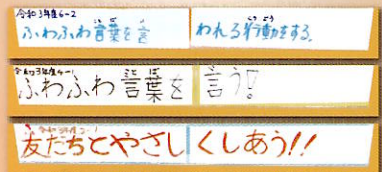 令和3年度6-2
ふわふわ言葉を言われる行動をする。
令和3年度4-1
ふわふわ言葉を言う!
友だちとやさしくしあう!!